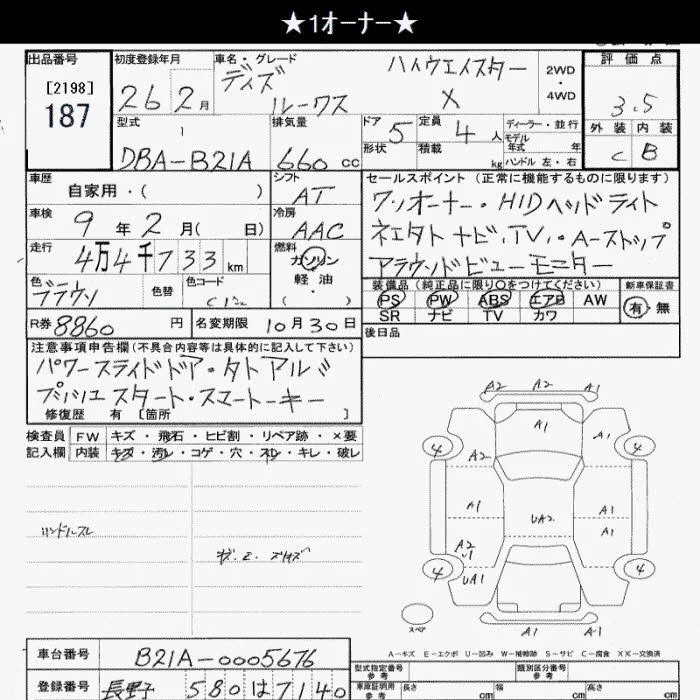 ★1オーナー★
出品番号 初度登録年月 車名・グレード 評価点
[2198]
187
26 2月
デイズ ハイウエイスター
ルークス X
2WD
・
4WD
3.5
外装 内装
C B
型式 排気量 ドア 5 定員 4人 ディーラー・並行
モデル年式 年
形状 積載 kg ハンドル 左・右
DBA-B21A 660cc
車歴 シフト
自家用・( ) AT
車検 冷房
9年2月( 日) AAC
走行 燃料
4万4千733km ガソリン
軽油
( ・ )
色 色替 色コード
ブラウン
R券 8860円 名変期限 10月30日
セールスポイント (正常に機能するものに限ります)
ワンオーナー・HIDヘッドライト
ナビ.TV.・A-ストップ
アラウンドビューモニター
装備品(純正品に限り○をつけてください) 新車保証書
PS PW ABS エアB AW 有・無
SR ナビ TV カワ
後日品
注意事項申告欄(不具合内容等は具体的に記入して下さい)
パワースライドドア・
プッシュスタート・スマートキー
修復歴 有 [箇所 ]
検査員 FW キズ・飛石・ヒビ割・リペア跡・×要
記入欄 内装 キズ・汚レ・コゲ・穴・スレ・キレ・破レ
ハンドルスレ
A2 A2 A1
A1 A1
4 A2 4
A1 UA2 A1
A1
A2
4 UA1 4
A1 A1
スペア
A-キズ E-エクボ U-凹み W-補修跡 S-サビ C-腐食 XX-交換済
車台番号 B21A-0005676
登録番号 長野 580 は 7140
型式指定番号 参考 類別区分番号 参考
車庫証明用 参考 長さ cm 幅 cm 高さ cm